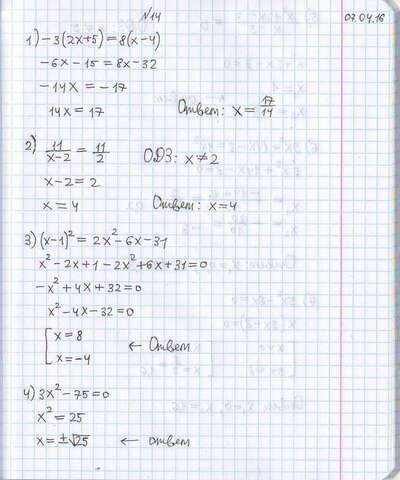 N14
07.04.16
1) -3(2x+5) = 8(x-4)
-6x - 15 = 8x - 32
-14x = -17
14x = 17 Ответ: x = 17/14
2) 11/(x-2) = 11/2 ОДЗ: x ≠ 2
x - 2 = 2
x = 4 Ответ: x = 4
3) (x-1)² = 2x² - 6x - 31
x² - 2x + 1 - 2x² + 6x + 31 = 0
-x² + 4x + 32 = 0
x² - 4x - 32 = 0
[ x = 8
x = -4 ← Ответ
4) 3x² - 75 = 0
x² = 25
x = ±√25 ← ответ